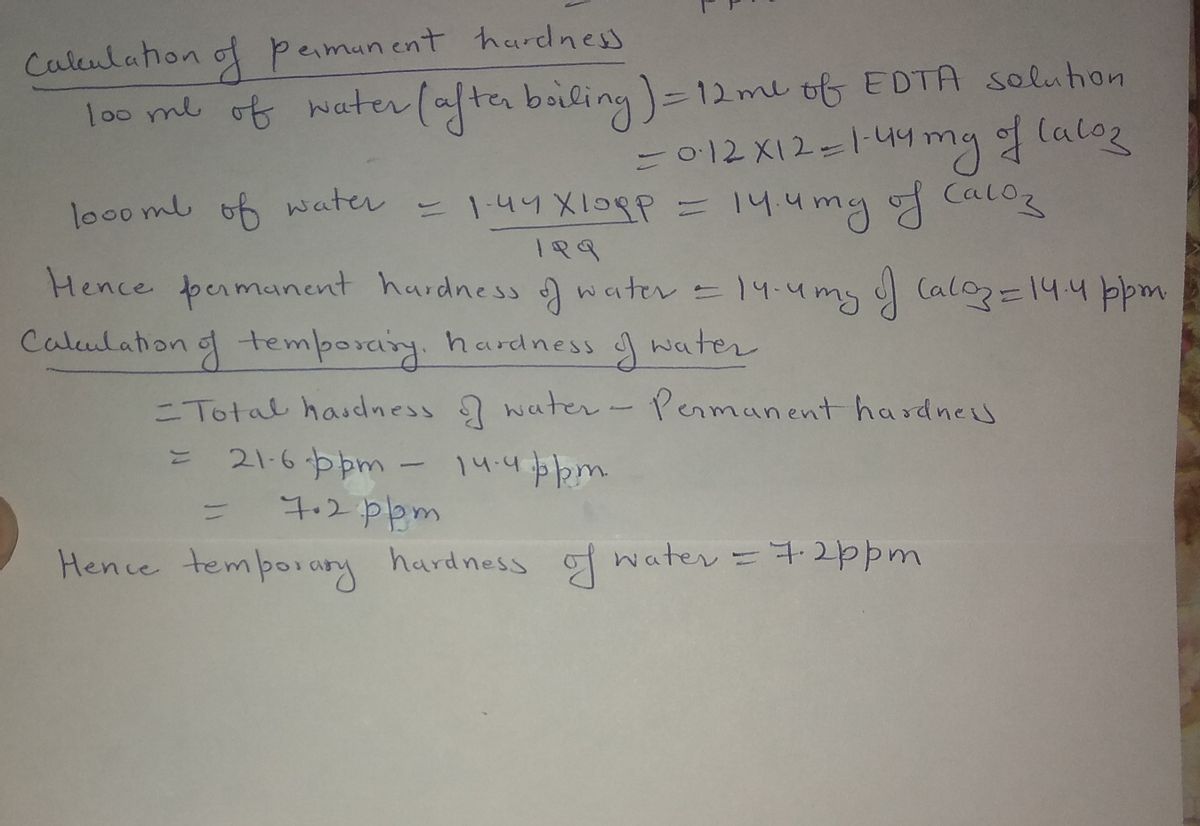 Calculation of permanent hardness
100 ml of water (after boiling) = 12 ml of EDTA solution
= 0.12 X 12 = 1.44 mg of CaCO3
1000 ml of water = 1.44 X 1000 = 14.4 mg of CaCO3
100
Hence permanent hardness of water = 14.4 mg of CaCO3 = 14.4 ppm
Calculation of temporary. hardness of water
= Total hardness of water - Permanent hardness
= 21.6 ppm - 14.4 ppm.
= 7.2 ppm
Hence temporary hardness of water = 7.2 ppm